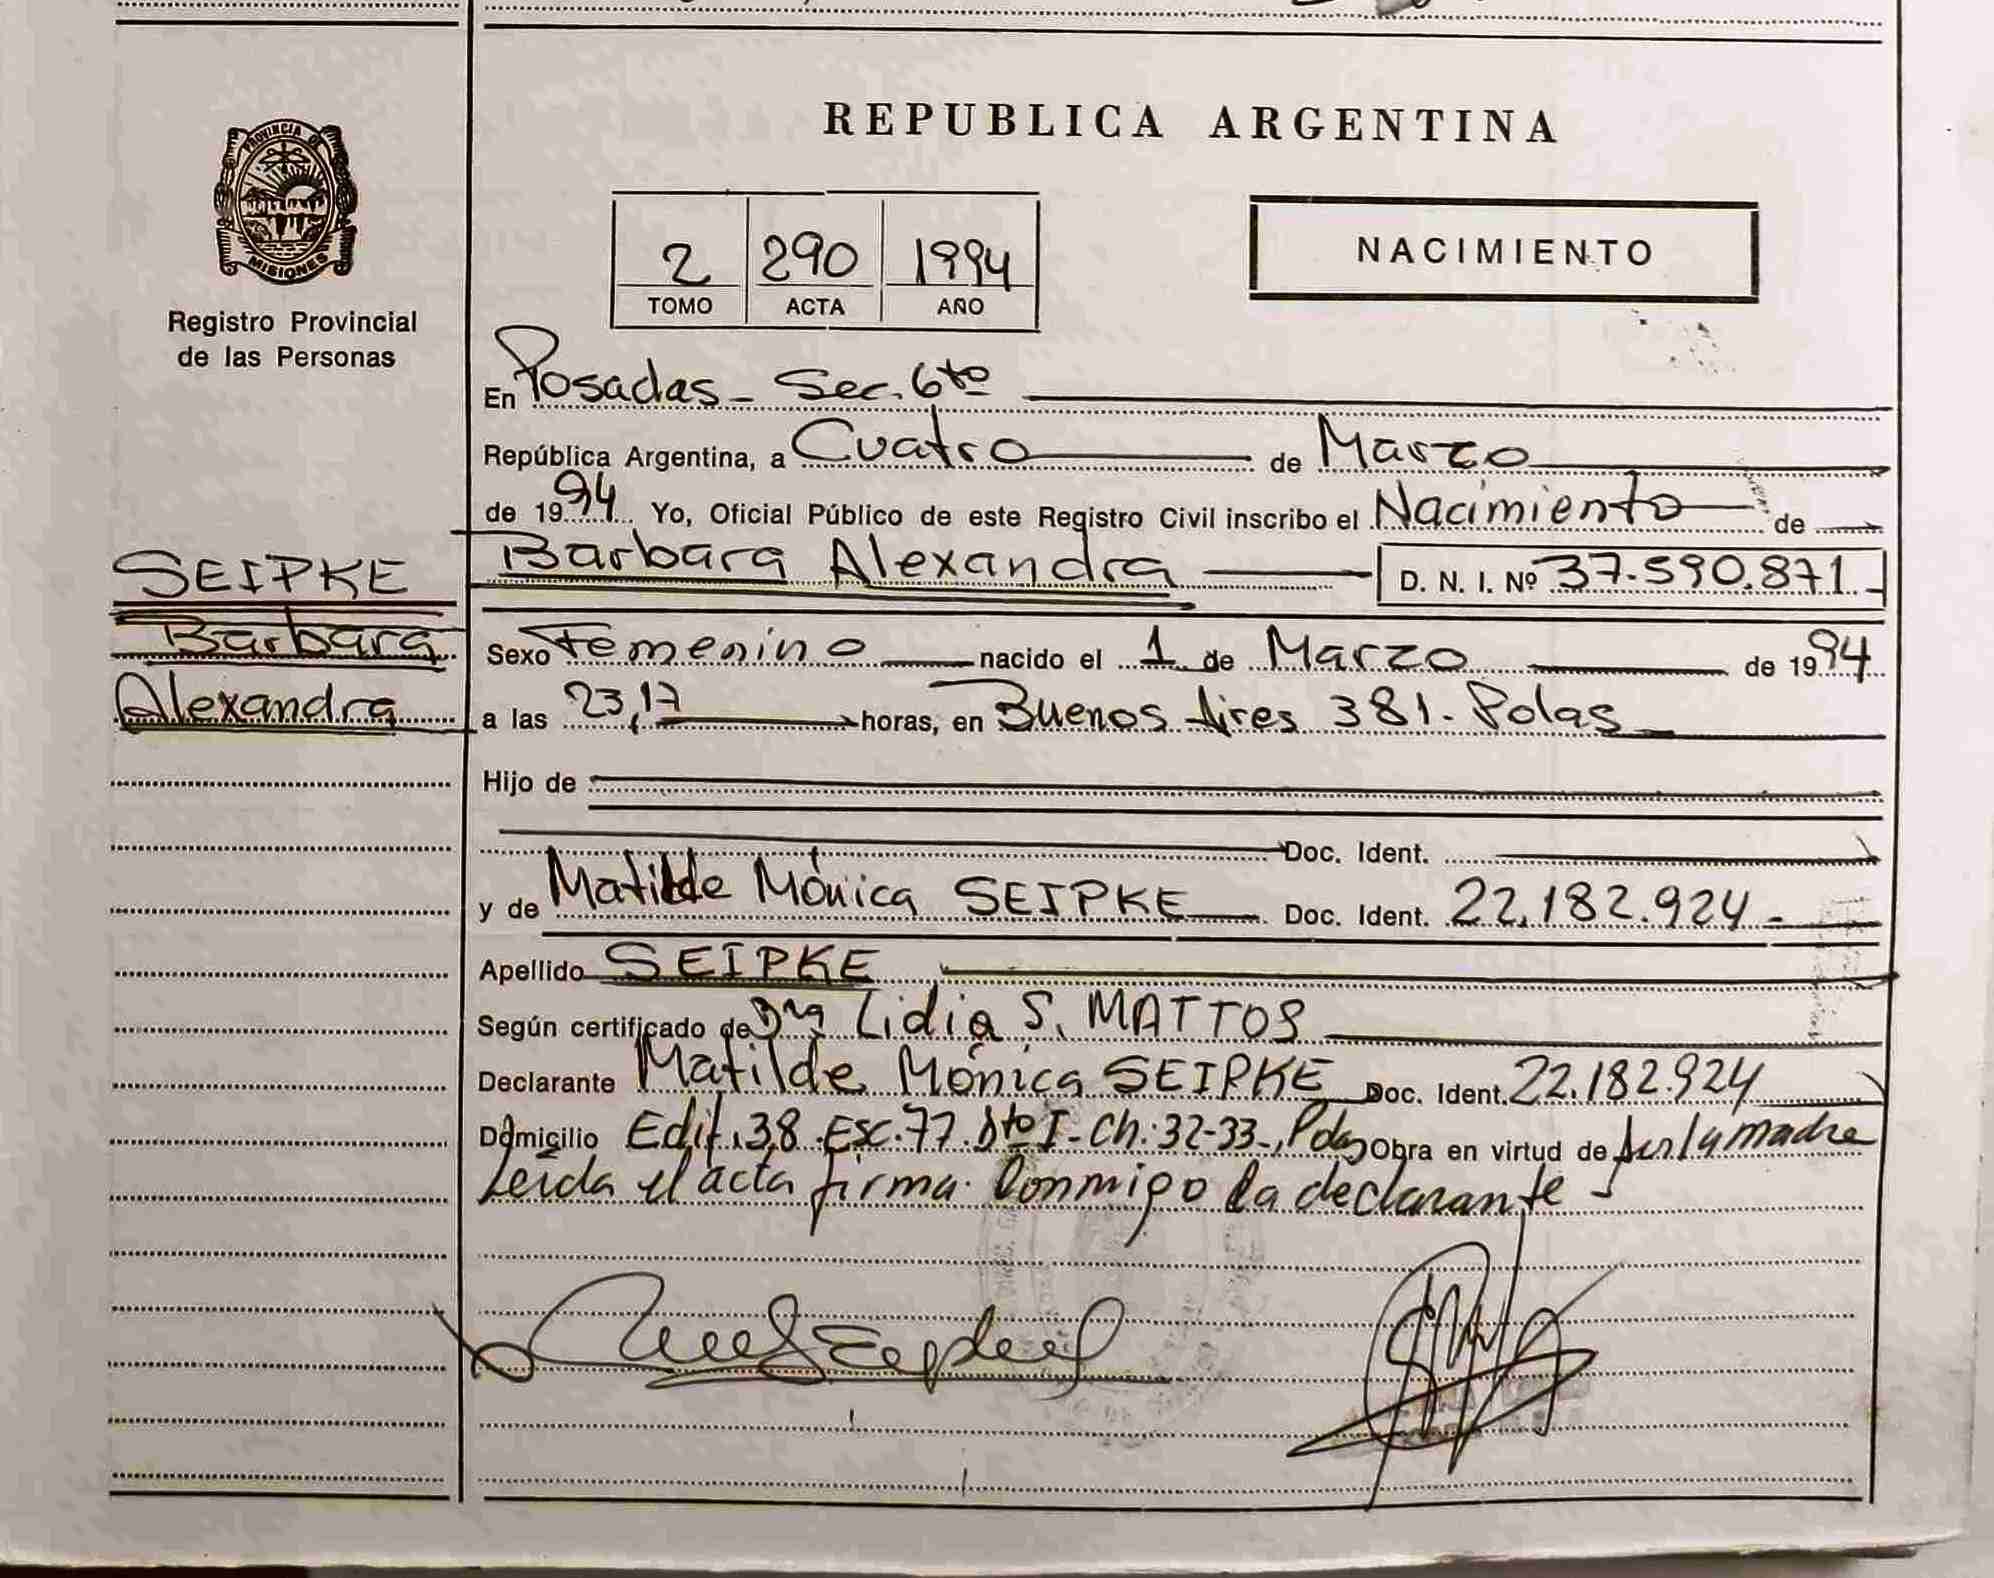 REPUBLICA ARGENTINA
PROVINCIA DE
MISIONES
Registro Provincial
de las Personas
2 290 1994
TOMO ACTA AÑO
NACIMIENTO
En Posadas - Sec. 6to
República Argentina, a Cuatro de Marzo
de 1994 Yo, Oficial Público de este Registro Civil inscribo el Nacimiento de
Barbara Alexandra D. N. I. Nº 37.590.871.-
SEIPKE
Barbara
Alexandra
Sexo Femenino nacido el 1 de Marzo de 1994
a las 23,17 horas, en Buenos Aires 381- Pdas
Hijo de
Doc. Ident.
y de Matilde Mónica SEIPKE Doc. Ident. 22.182.924 -
Apellido SEIPKE
Según certificado de Dra Lidia S. MATTOS
Declarante Matilde Mónica SEIPKE Doc. Ident. 22.182.924
Domicilio Edif. 38 Esc. 77 Dto I - Ch: 32-33-, Pdas Obra en virtud de ser la madre
Leída el acta firma conmigo la declarante